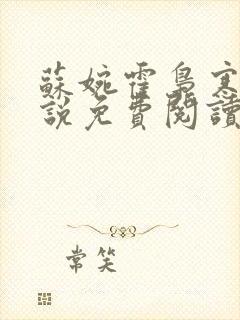 蘇婉霍梟寒
說免費閱讀
常笑